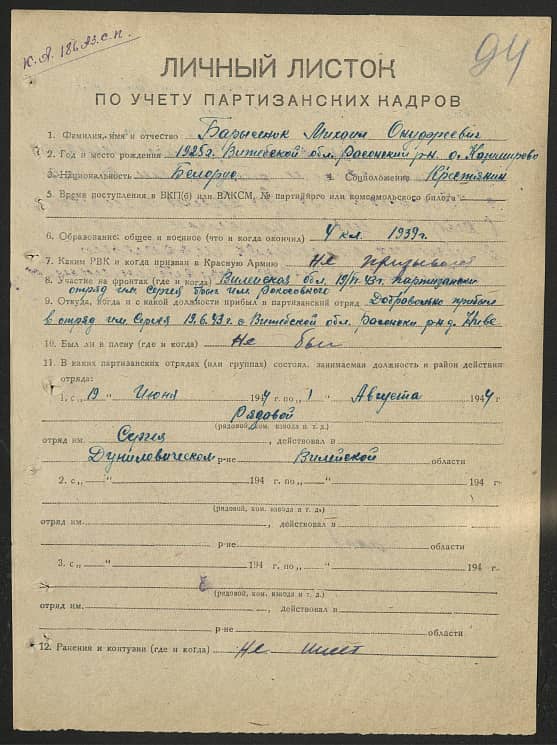 94
ЛИЧНЫЙ ЛИСТОК
ПО УЧЕТУ ПАРТИЗАНСКИХ КАДРОВ
1. Фамилия, имя и отчество Барысенок Михаил Онуфреевич
2. Год и место рождения 1925г. Витебской обл. Расонский р-н д. Казимирово
3. Национальность Белорус 4. Соцположение Крестянин
5. Время поступления в ВКП(б) или ВЛКСМ, № партийного или комсомольского билета
6. Образование: общее и военное (что и когда окончил) 4 кл. 1939г.
7. Каким РВК и когда призван в Красную Армию Не призывался
8. Участие на фронтах (где и когда) Вилейская обл. 19/VI-43г. партизански
отряд им. Сергея бриг. им. Рокосовского
9. Откуда, когда и с какой должности прибыл в партизанский отряд Добравольно прибыл
в отряд им. Сергея 19.6.43г. с Витебской обл. Расонски р-н д.
10. Был ли в плену (где и когда) Не был
11. В каких партизанских отрядах (или группах) состоял, занимаемая должность и район действия
отряда:
1. с „ 19 „ Июня 1944 г. по „ 1 „ Августа 1944 г
Рядовой
(рядовой, ком. взвода и т. д.)
отряд им. Сергея , действовал в
Дуниловическом р-не Вилейской области
2. с „ „ 194 г. по „ „ 194 г.
(рядовой, ком. взвода и т. д.)
отряд им. , действовал в
р-не области
3. с „ „ 194 г. по „ „ 194 г.
(рядовой, ком. взвода и т. д.)
отряд им. , действовал в
р-не области
12. Ранения и контузии (где и когда) Не имеет